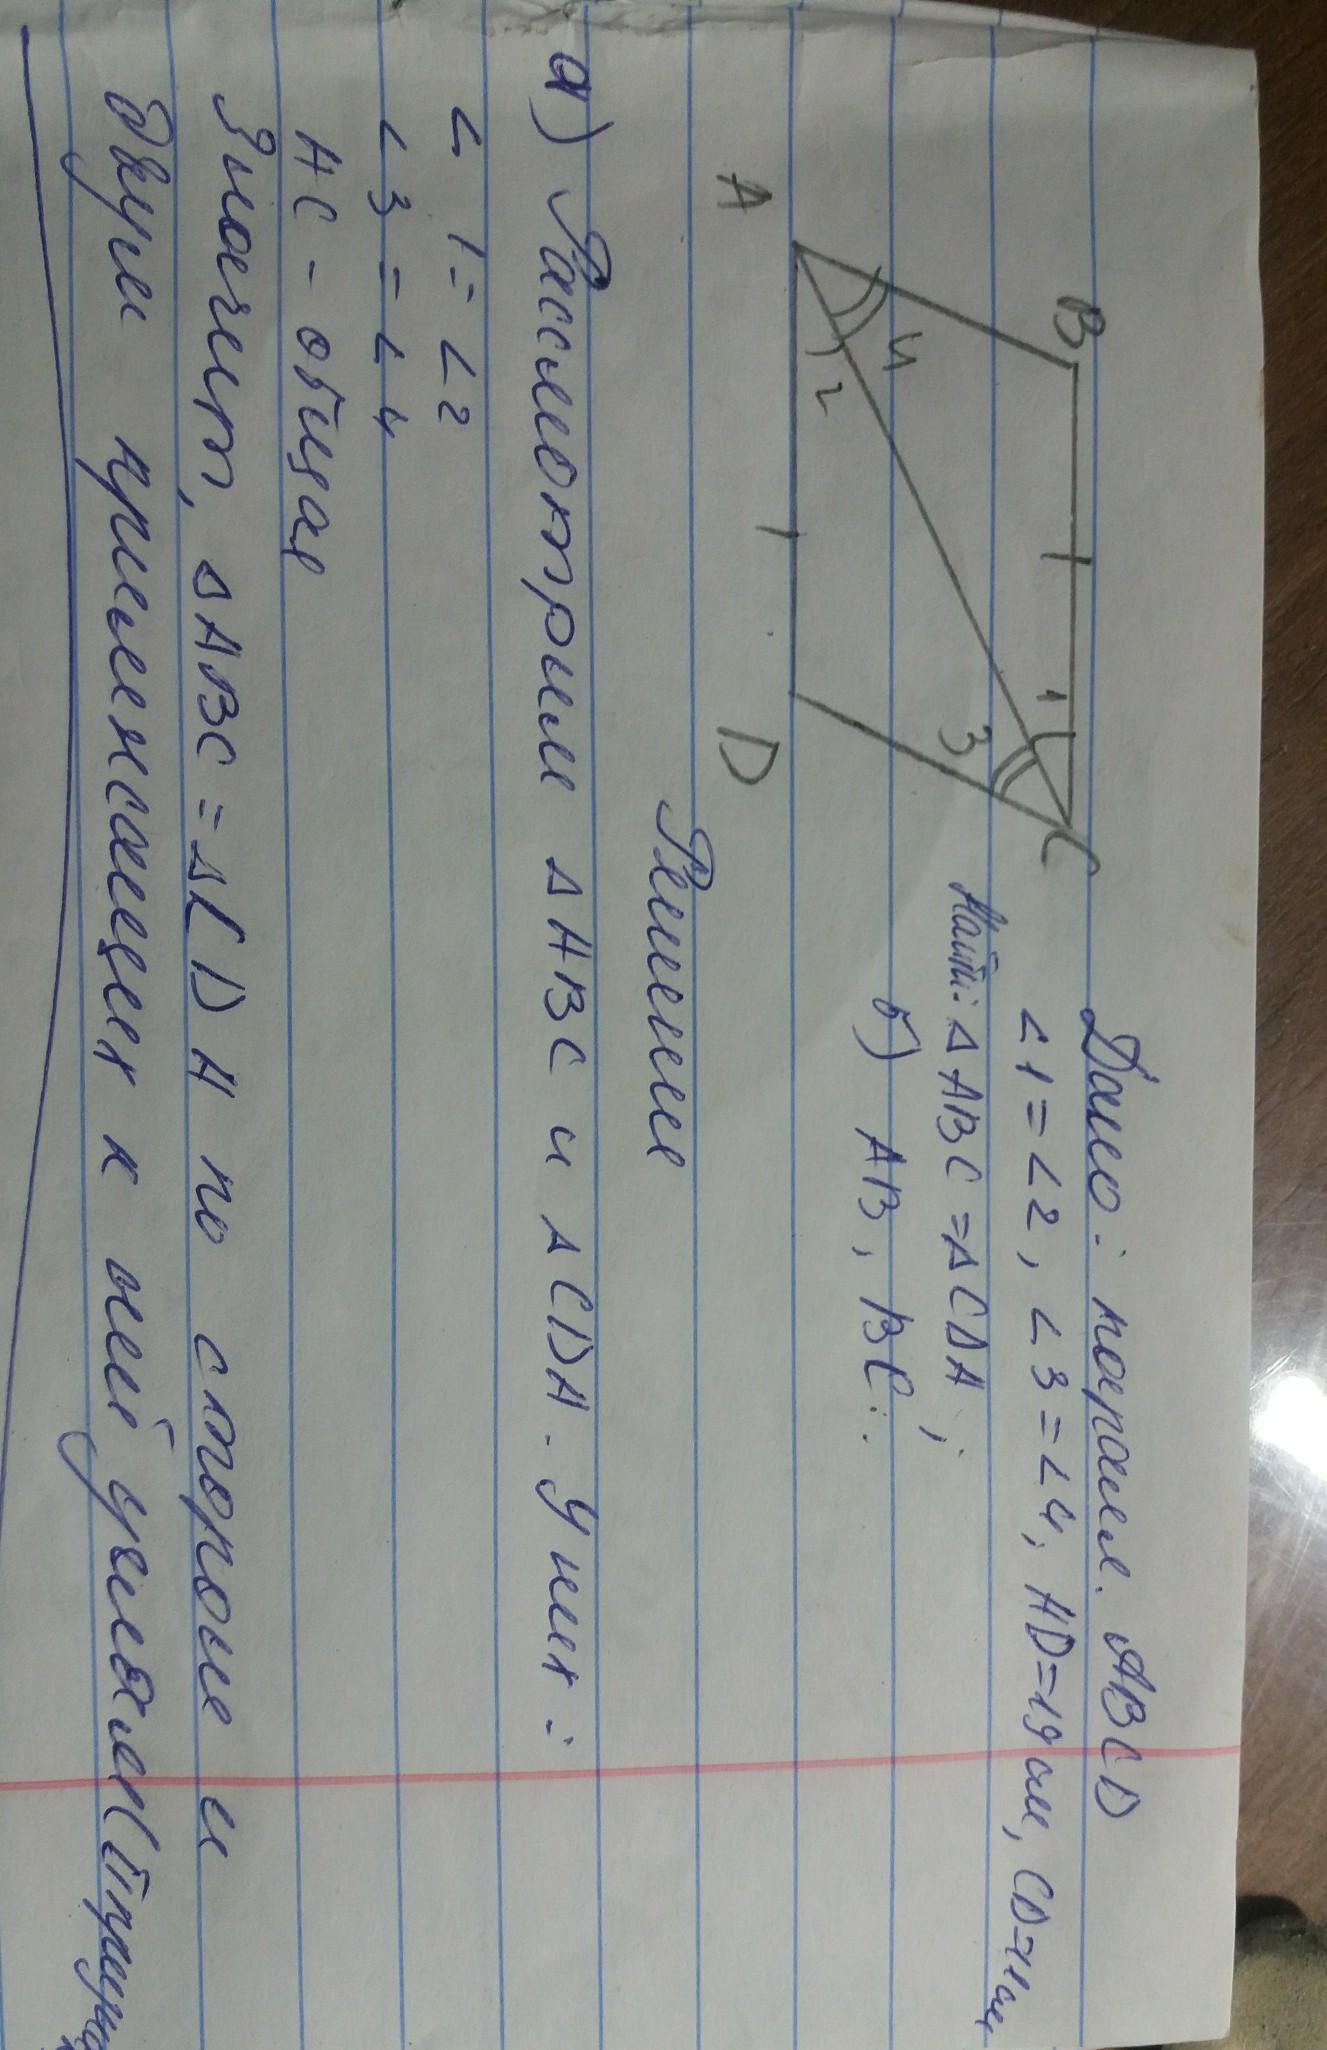 Дано: парал. ABCD
∠1=∠2, ∠3=∠4, AD=19 см, CD=11 см
Найти: ΔABC=ΔCDA;
б) AB, BC.
B
C
1
4
3
2
A
D
Решение
а) Рассмотрим ΔABC и ΔCDA. У них:
∠1=∠2
∠3=∠4
AC - общая
Значит, ΔABC=ΔCDA по стороне и
двум прилежащем к ней углам (II